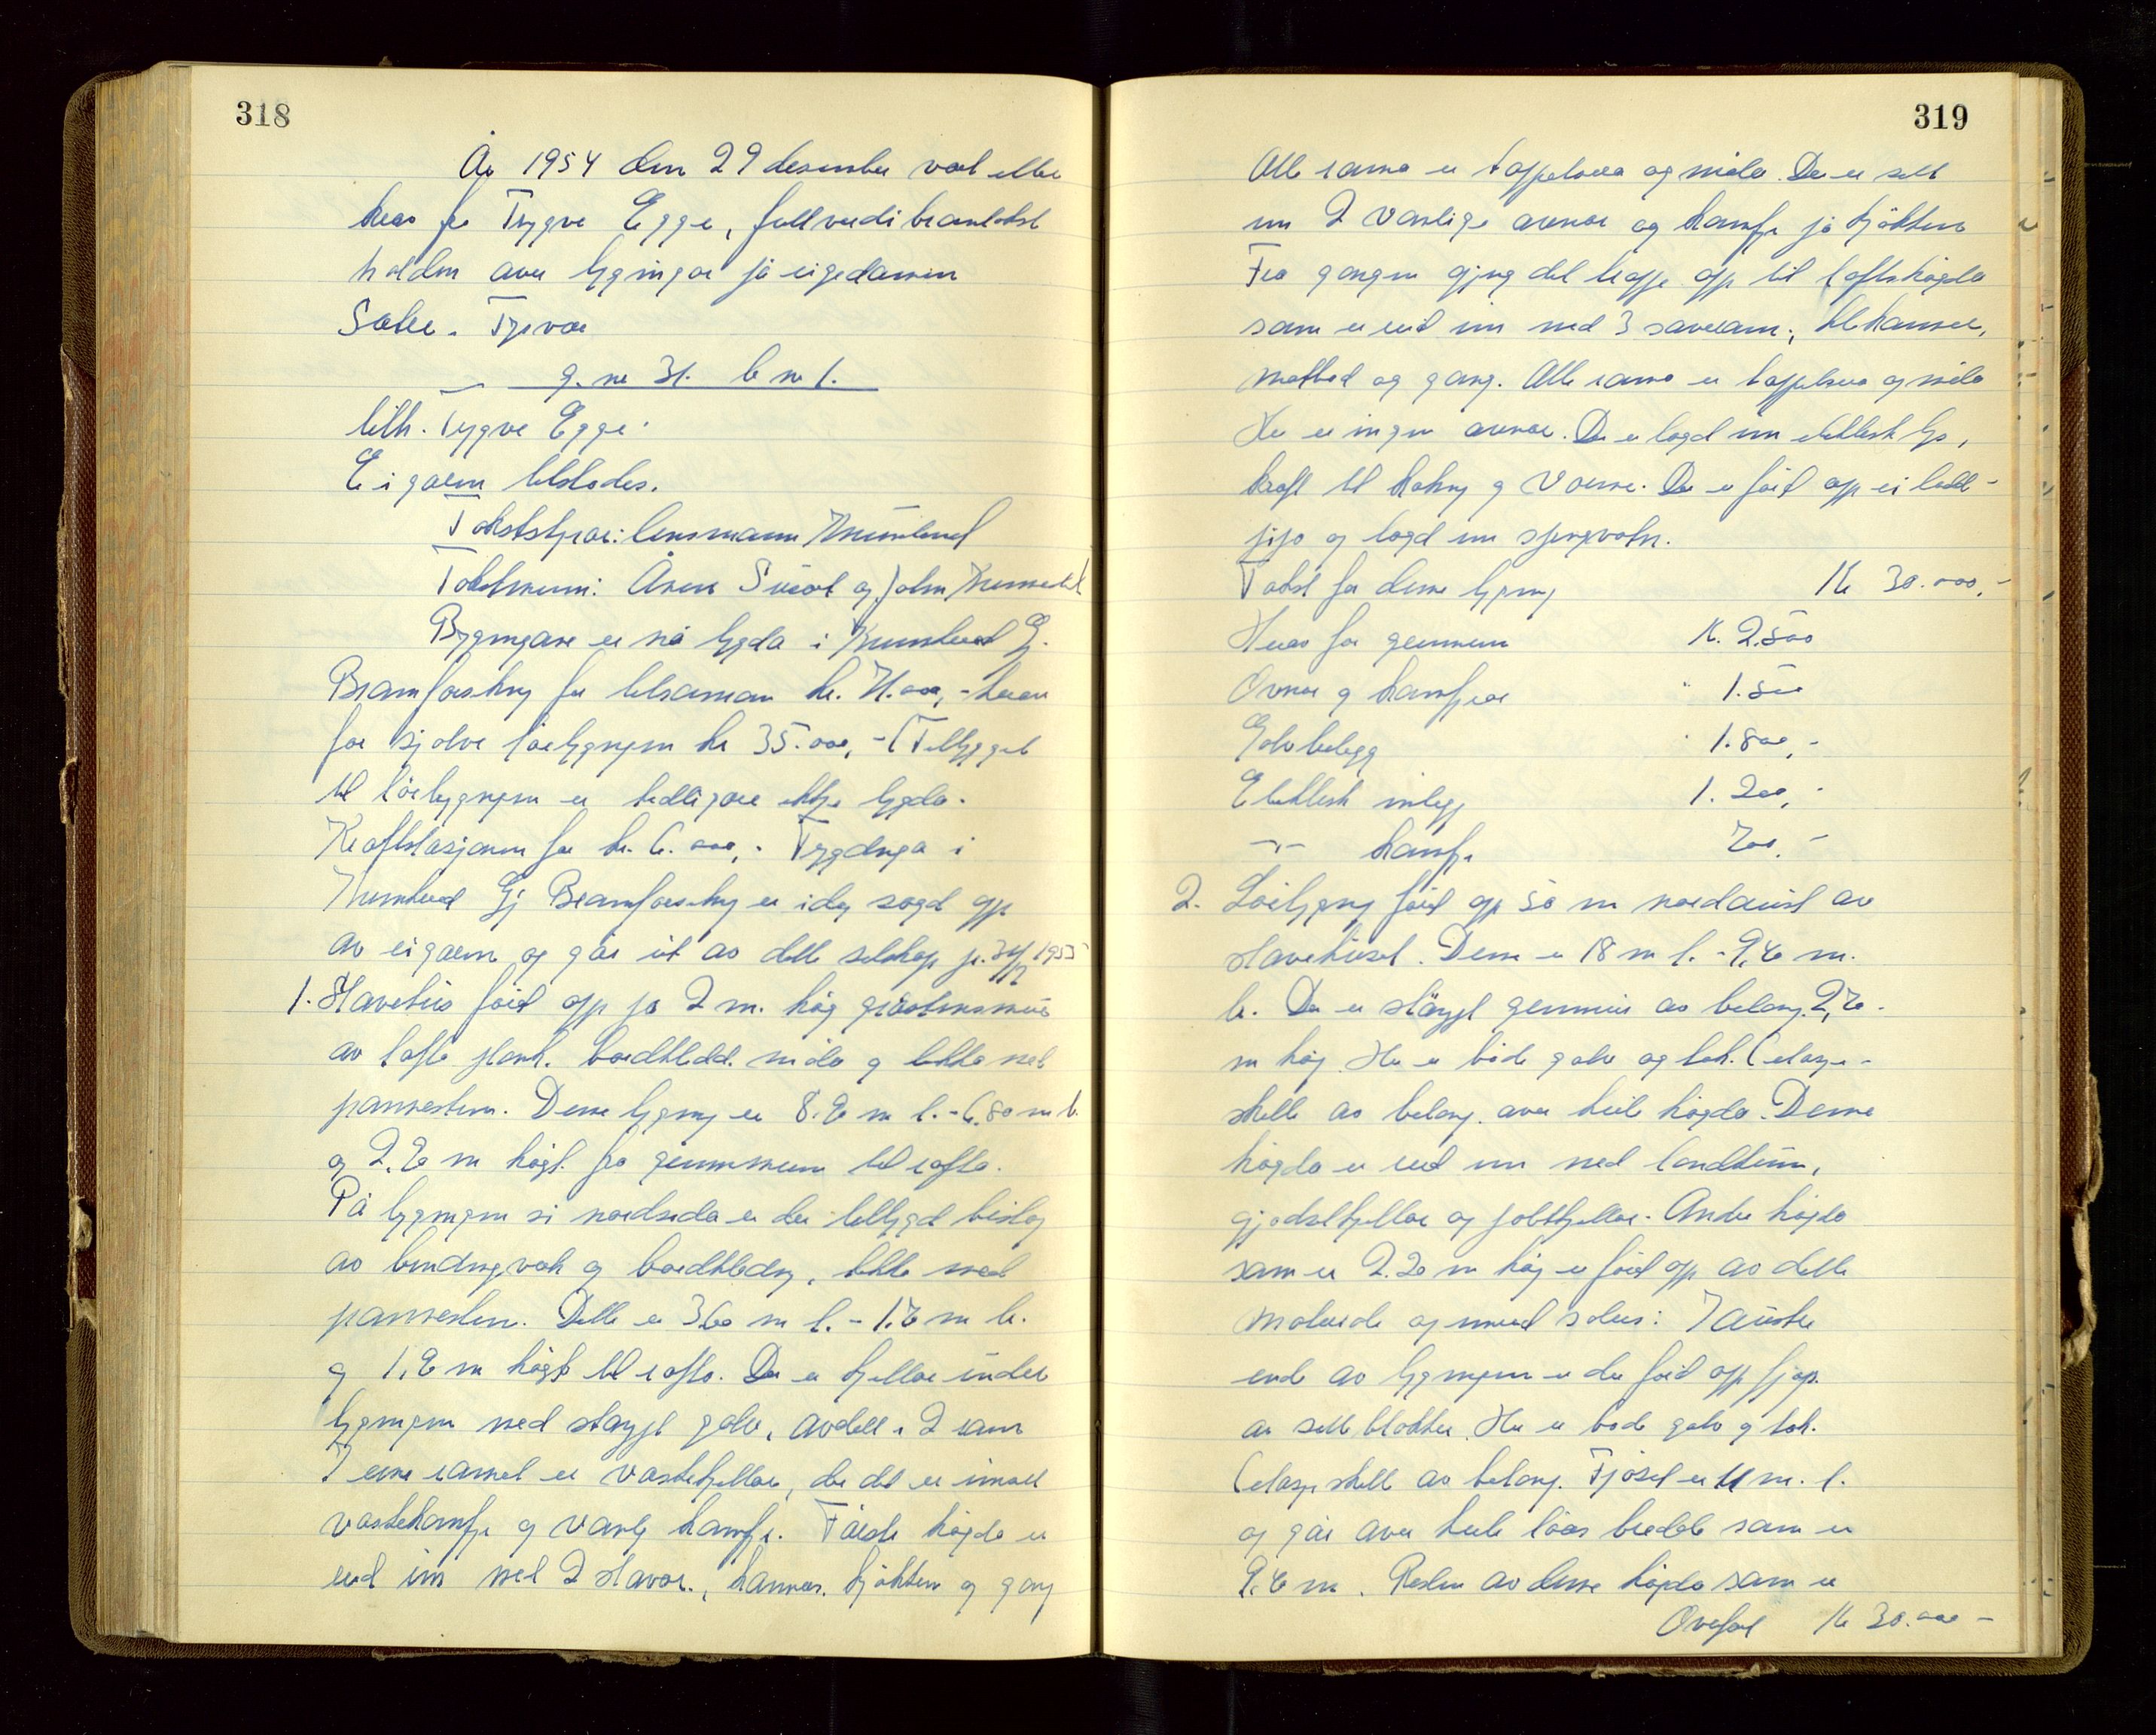 318
År 1954 den 29 desember vart etter
krav frå Trygve Egge, fullverdi branntakst
halden over bygningar på eigedomen
Tysvær
g. nr 31. b nr 1.
tilh. Trygve Egge.
Eigaren tilstades.
Takststyrar: lensmann
Takstmenn: og John
Bygningane er nå trygda i G.
Brannforsikring for tilsaman kr. -herav
for sjølve løebygningen kr 35.000,- (Tilbygget
til løebygningen er tidligare ikkje trygda.
Kraftstasjonen for kr. 6.000,- Trygdinga i
Gj Brannforsikring er idag sagd opp
av eigaren og går ut av dette selskap pr. 1955
1. Stavehus ført opp på 2 m. høg gråsteinsmur
av lafta plank. bordkledd. måla og tekka med
pannestein. Denne bygning er m l. - 6,80 m b.
og m høgt frå grunnmuren til rafta.
På bygningen si nordsida er der tilbygd bislag
av bindingverk og bordkledning, tekka med
pannestein. Dette er 3.60 m l. - m br.
og m høgt til rafta. Der er kjellar under
bygningen med støypt golv, avdelt i 2 rom
I eine rommet er vaskekjellar, der det er innsett
vaskekomfyr og vanleg komfyr. Første høgda er
reid inn med 2 staver, kammers, kjøkken og gang
319
Alle romma er tapetsera og måla. Der er sett
inn 2 vanlige omnar og komfyr på kjøkkenet
Frå gangen gjeng det trapp opp til loftshøgda
som er reid inn med 3 soverom, kleskammer,
matbod og gang. Alle romma er tapetsera og måla
Her er ingen omnar. Der er lagd inn elektrisk lys,
kraft til koking og varme. Der er ført opp ei teell-
pipa og lagd inn springvatn.
Takst for denne bygning Kr 30.000,-
Herav for grunnmur K. 2.500
Omnar og komfyrar " 1.500
Golvbelegg " 1.800,-
Elektrisk innlegg 1.200,-
-"- komfyr 700,-
2. Løebygning ført opp 50 m nordaust av
stavehuset. Denne er 18 m l. - m.
br. Der er støypt grunnmur av betong
m høg. Her er både golv og tak. (etasje-
skille av betong. over heile høgda. Denne
høgda er reid inn med landtun,
gjødselkjellar og potetkjellar. Andre høgda
som er 2.20 m høg er ført opp av dette
materiale og innreid soleis: I austre
ende av bygningen er der ført opp fjøs.
av sett blokker. Her er både golv og tak.
(etasjeskille av betong. Fjøset er 11 m. l.
og går over heile løas bredde som er
m. Resten av denne høgda som er
Overført Kr 30.000 -